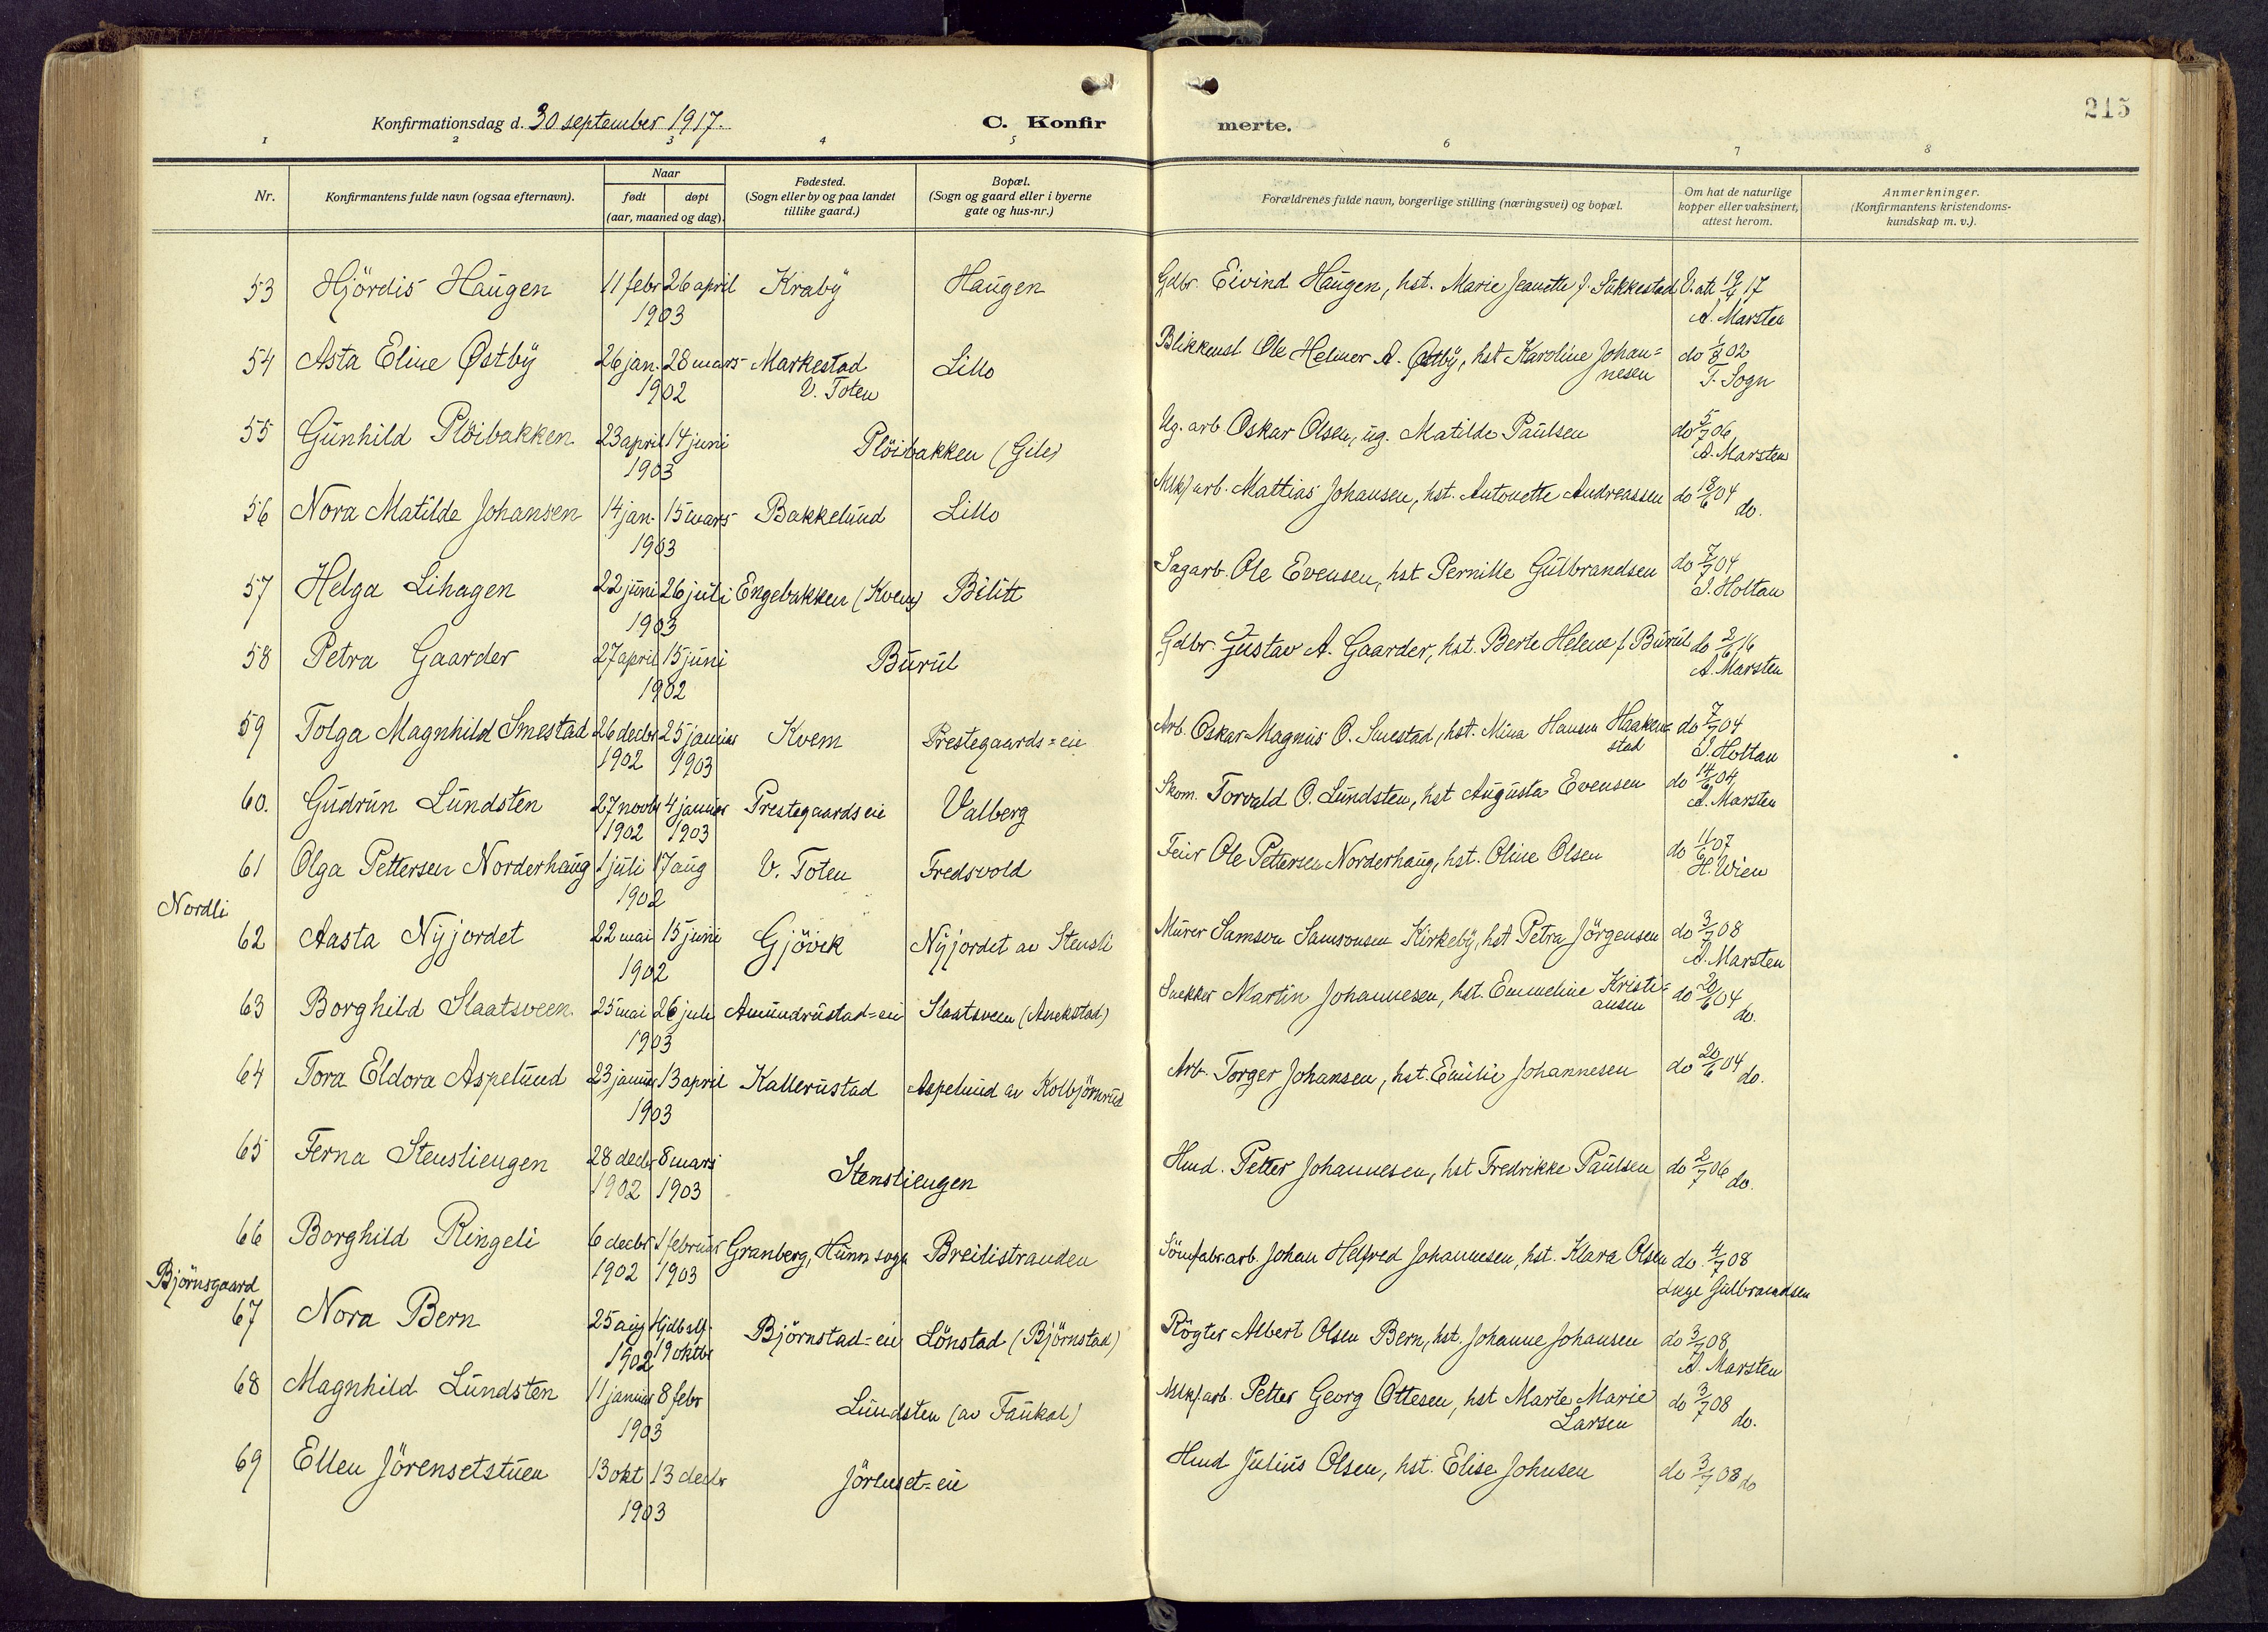 215
Konfirmationsdag d. 30 september 1917.
C. Konfirmerte.
1 2 3 4 5 6 7 8
Nr.
Konfirmantens fulde navn (ogsaa efternavn).
Naar
født døpt
(aar, maaned og dag).
Fødested.
(Sogn eller by og paa landet
tillike gaard.)
Bopæl.
(Sogn og gaard eller i byerne
gate og hus-nr.)
Forældrenes fulde navn, borgerlige stilling (næringsvei) og bopæl.
Om hat de naturlige
kopper eller vaksinert,
attest herom.
Anmerkninger.
(Konfirmantens kristendoms-
kundskap m. v.).
53 Hjördis Haugen 11 febr 26 april Kraby Haugen Gdbr. Eivind Haugen, hst. Marie Jeanette f. Sukkestad V. att 19/4 17
1903 A. Marsten
54 Asta Eline Østby 26 jan. 28 mars Markestad Lillo Blikkensl Ole Helmer A. Østby, hst Karoline Johan= do 1/8 02
1902 V. Toten nesen T. Sogn
55 Gunhild Plöibakken 23 april 14 juni Plöibakken (Gile) Ug. arb Oskar Olsen, ug. Matilde Paulsen do 5/7 06
1903 A. Marsten
56 Nora Matilde Johansen 14 jan. 15 mars Bakkelund Lillo Mlkf arb. Mattias Johansen, hst. Antonette Andreassen do 18/6 04 do.
1903
57 Helga Lihagen 22 juni 26 juli Engebakken (Kvem) Bilitt Sagarb. Ole Evensen, hst Pernille Gulbrandsen do 7/7 04
1903 J. Holtan
58 Petra Gaarder 27 april 15 juni Burul Gdbr. Gustav A. Gaarder, hst. Berte Helene f. Burul do 2/6 16
1902 A. Marsten
59 Tolga Magnhild Smestad 26 decbr 25 januar Kvem Prestegaards=eie Arb. Oskar Magnus O. Smestad, hst. Mina Hansen Haaken= do 7/7 04
1902 1903 stad J. Holtan
60. Gudrun Lundsten 27 novbr 4 januar Prestegaards eie Valberg Skom. Torvald O. Lundsten, hst Augusta Evensen do 14/6 04
1902 1903 A. Marsten
61 Olga Pettersen Norderhaug 1 juli 17 aug V. Toten Fredsvold Feier Ole Pettersen Norderhaug, hst. Oline Olsen do 11/6 07
1902 H. Wien
Nordli
62 Aasta Nyjordet 22 mai 15 juni Gjövik Nyjordet av Stensli Murer Samson Samsonsen Kirkeby, hst Petra Jörgensen do 3/7 08
1902 A. Marsten
63 Borghild Slaatsveen 25 mai 26 juli Amundrustad=eie Slaatsveen (Anekstad) Snekker Martin Johannesen, hst. Emmeline Kristi= do 20/6 04
1903 ansen do.
64 Tora Eldora Aspelund 23 januar 13 april Kallerustad Aspelund av Kolbjörnrud Arb. Torger Johansen, hst. Emilie Johannesen do 20/6 04 do.
1903
65 Ferna Stensliengen 28 decbr 8 mars Stensliengen Hmd. Petter Johannesen, hst Fredrikke Paulsen do 2/7 06 do.
1902 1903
66 Borghild Ringeli 6 decbr 1 februar Granberg, Hunn sogn Breilistranden Sömfabr.arb. Johan Helfred Johannesen, hst. Klara Olsen do. 4/7 08
1902 1903 Læge Gulbrandsen
Björnsgaard
67 Nora Bern 25 aug Hjdb. Björnstad=eie Lönstad (Björnstad) Rögter Albert Olsen Bern, hst. Johanne Johansen do 3/7 08
1902 19 oktbr A. Marsten
68 Magnhild Lundsten 11 januar 8 febr Lundsten (av Faukal) Mlkf.arb. Petter Georg Ottesen, hst Marte Marie do 3/7 08
1903 Larsen do.
69 Ellen Jörensetstuen 13 okt 13 decbr Jörenset=eie Hmd Julius Olsen, hst. Elise Johnsen do 3/7 08 do
1903